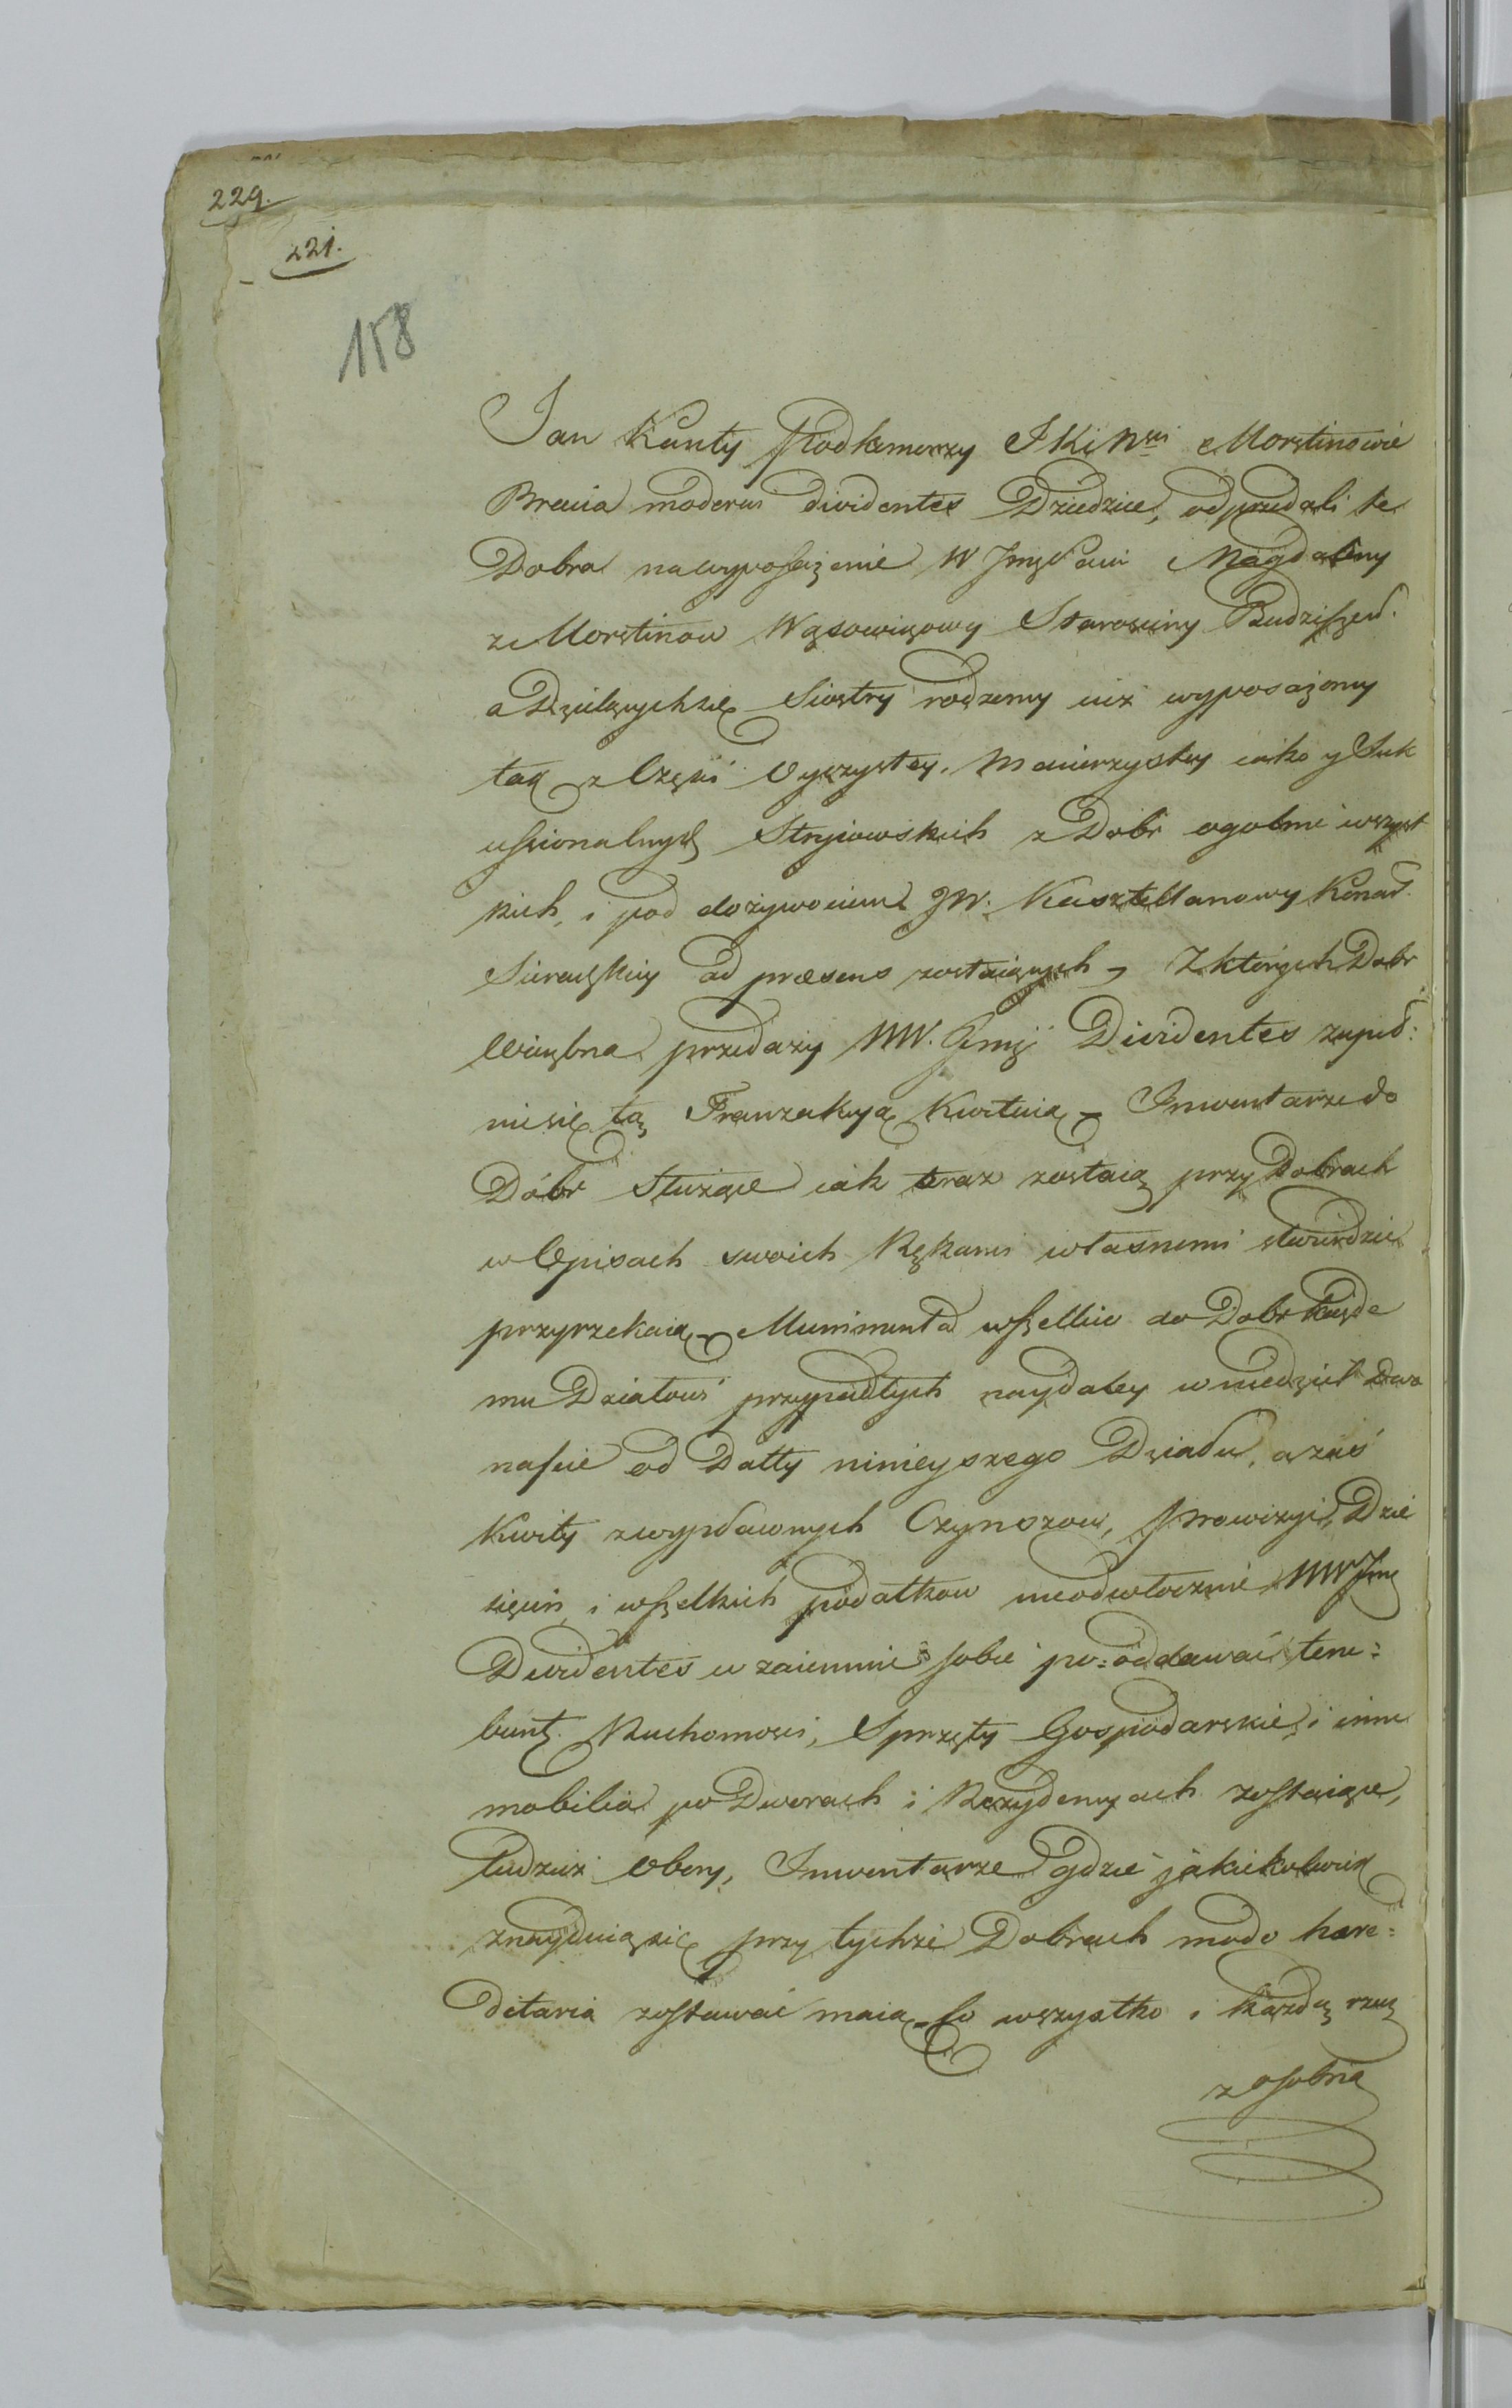 229.
221.
158
Jan Kanty Podkomorzy JKiNści Morstinowie
Bracia moderni dividentes Dziedzice, odprzedali te
Dobra na wyposażenie W Jmć Pani Magdaleny
z Morstinow Wąsowiczowy Starościny Budziszew.
a Dzielących się Siostry rodzoney iuż wyposażoney
tak z Części Oyczystey, Macierzystey iako y Suk
cessionalnych Stryiowskich z Dobr ogolnie wszyst
kich, i pod dożywociem JW. Kasztellanowy Konar.
Sieradzkiey ad præsens zostaiących, Z których Dobr
Wiązowna przedaży WW. Jmć Dividentes zupeł:
nie się tą Tranzakcyą Kwituią – Inwentarze do
Dóbr służące iak teraz zostaią przy Dobrach
w Opisach swoich Rękami własnemi stwierdzić
przyrzekaią – Munimenta wszelkie do Dobr każde
mu Działowi przypadłych naydaley w niedziel Dwa
naście od Datty ninieyszego Działu, a zaś
Kwity z wypłaconych Czynszow, Prowizyi, Dzie
sięcin i wszelkich podatkow nieodwłocznie WW Jmć
Dividentes wzaiemnie sobie po=oddawać tene=
bunt. Ruchomości, Sprzęty Gospodarskie, i inne
mobilia po Dworach i Rezydencyach zostaiące,
tudzież Obory, Inwentarze gdzie jakiekolwiek
znayduią się przy tychże Dobrach modo hære=
ditaria zostawać maią – Co wszystko i każdą rzecz
z osobna